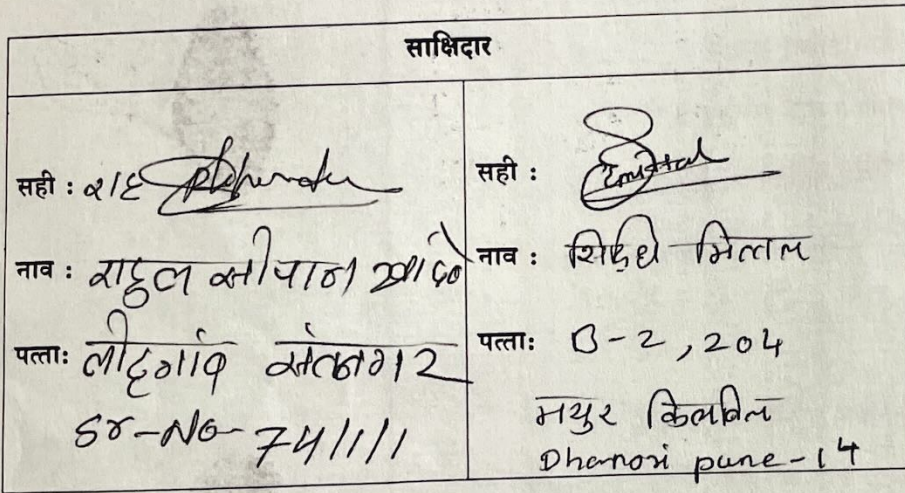 साक्षिदार
सही :
नाव : राहुल सोपान खांदवे
पत्ता: लोहगांव संतनगर
Sr-No- 74/1/1
सही :
नाव : सिद्धि मित्तल
पत्ता: B-2, 204
मयुर किलबिल
Dhanori pune-14